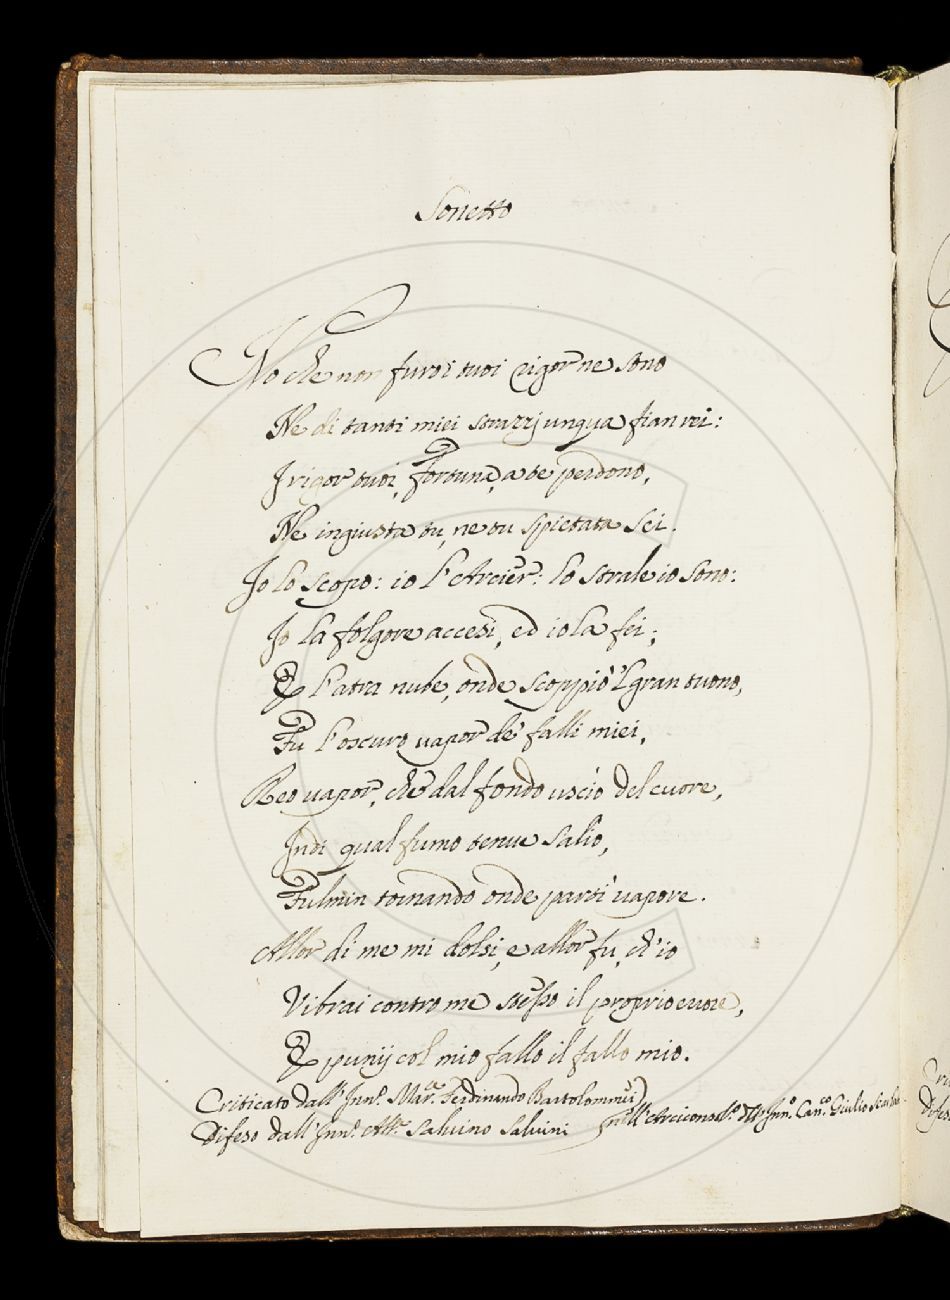 Sonetto
No che non furoi tuoi rigor ne sono
Ne di tanti miei strazzj unqua fian rei:
I rigor tuoi, Fortuna, a te perdono,
Ne ingiusta tu, ne tu spietata sei.
Io lo scopo: io l'Arcier: lo strale io sono:
Io la folgore accesi, ed io la fei;
E l'atra nube, onde scoppiò 'l gran tuono,
Fu l'oscuro vapor de' falli miei,
Reo vapor, che dal fondo uscìo del cuore,
Indi qual fumo tenue salìo,
Fulmin tornando onde partì vapore.
Allor di me mi dolsi, e allor fu, ch'io
Vibrai contro me stesso il proprio cuore,
E punij col mio fallo il fallo mio.
Criticato dall' Inn.º Mar. Ferdinando Bartolommei
Difeso dall' Inn.º Ab. Salvino Salvini
Inn.º Can.co Giulio